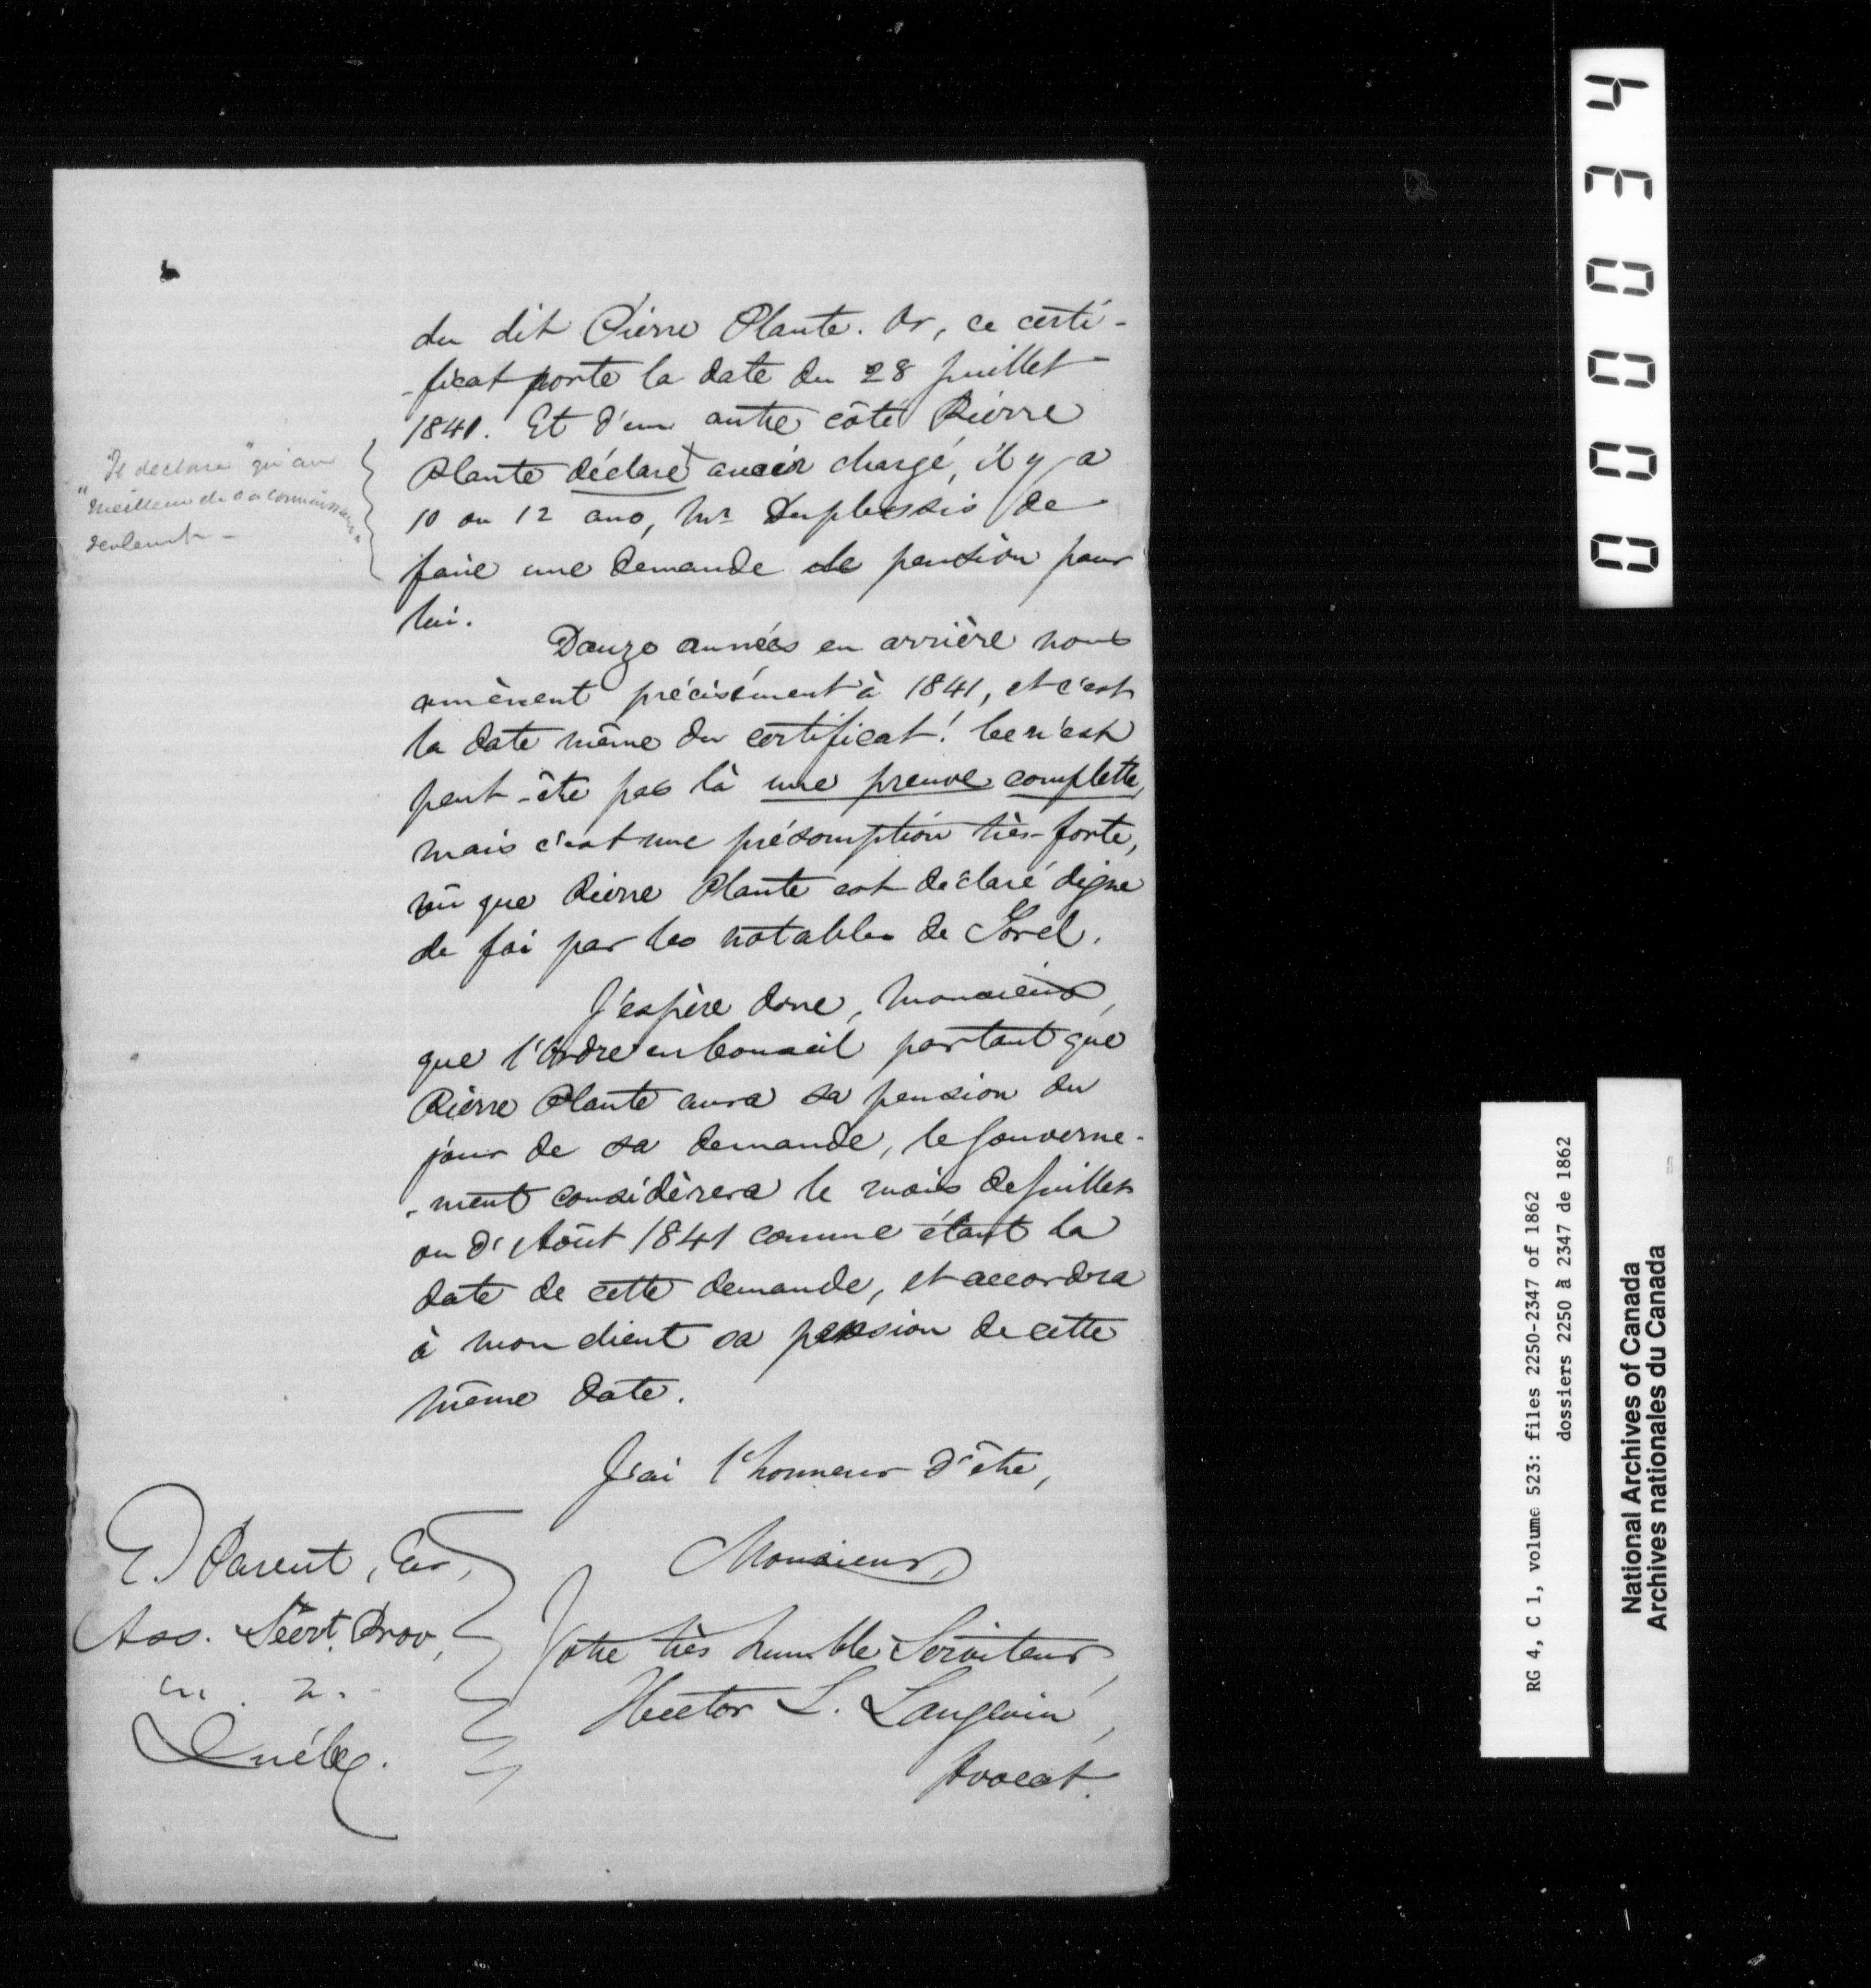 du dit Pierre Plante. Or, ce certi-
-ficat porte la date du 28 Juillet
1841. Et d'un autre côté Pierre
Plante déclare avoir chargé, il y a
10 ou 12 ans, Mr Duplessis de
faire une demande de pension pour
lui.
"Il declare" qu'au
"meilleur de sa connaissance"
seulemt -
Douze années en arrière nous
amènent précisément à 1841, et c'est
la date même du certificat! Ce n'est
peut-être pas là une preuve complette,
mais c'est une présomption très-forte,
vû que Pierre Plante est déclaré digne
de foi par les notables de Sorel.
J'espère donc, Monsieur,
que l'Ordre en Conseil portant que
Pierre Plante aura sa pension du
jour de sa demande, le Gouverne-
-ment considèrera le mois de Juillet
ou d'Août 1841 comme étant la
date de cette demande, et accordra
à mon client sa pension de cette
même date.
J'ai l'honneur d'être,
Monsieur,
Votre très humble Serviteur,
Hector L. Langevin,
Avocat.
E. Parent, Ecr,
Ass. Secrt. Prov,
Québec.
00034
RG 4, C 1, volume 523: files 2250-2347 of 1862
dossiers 2250 à 2347 de 1862
National Archives of Canada
Archives nationales du Canada